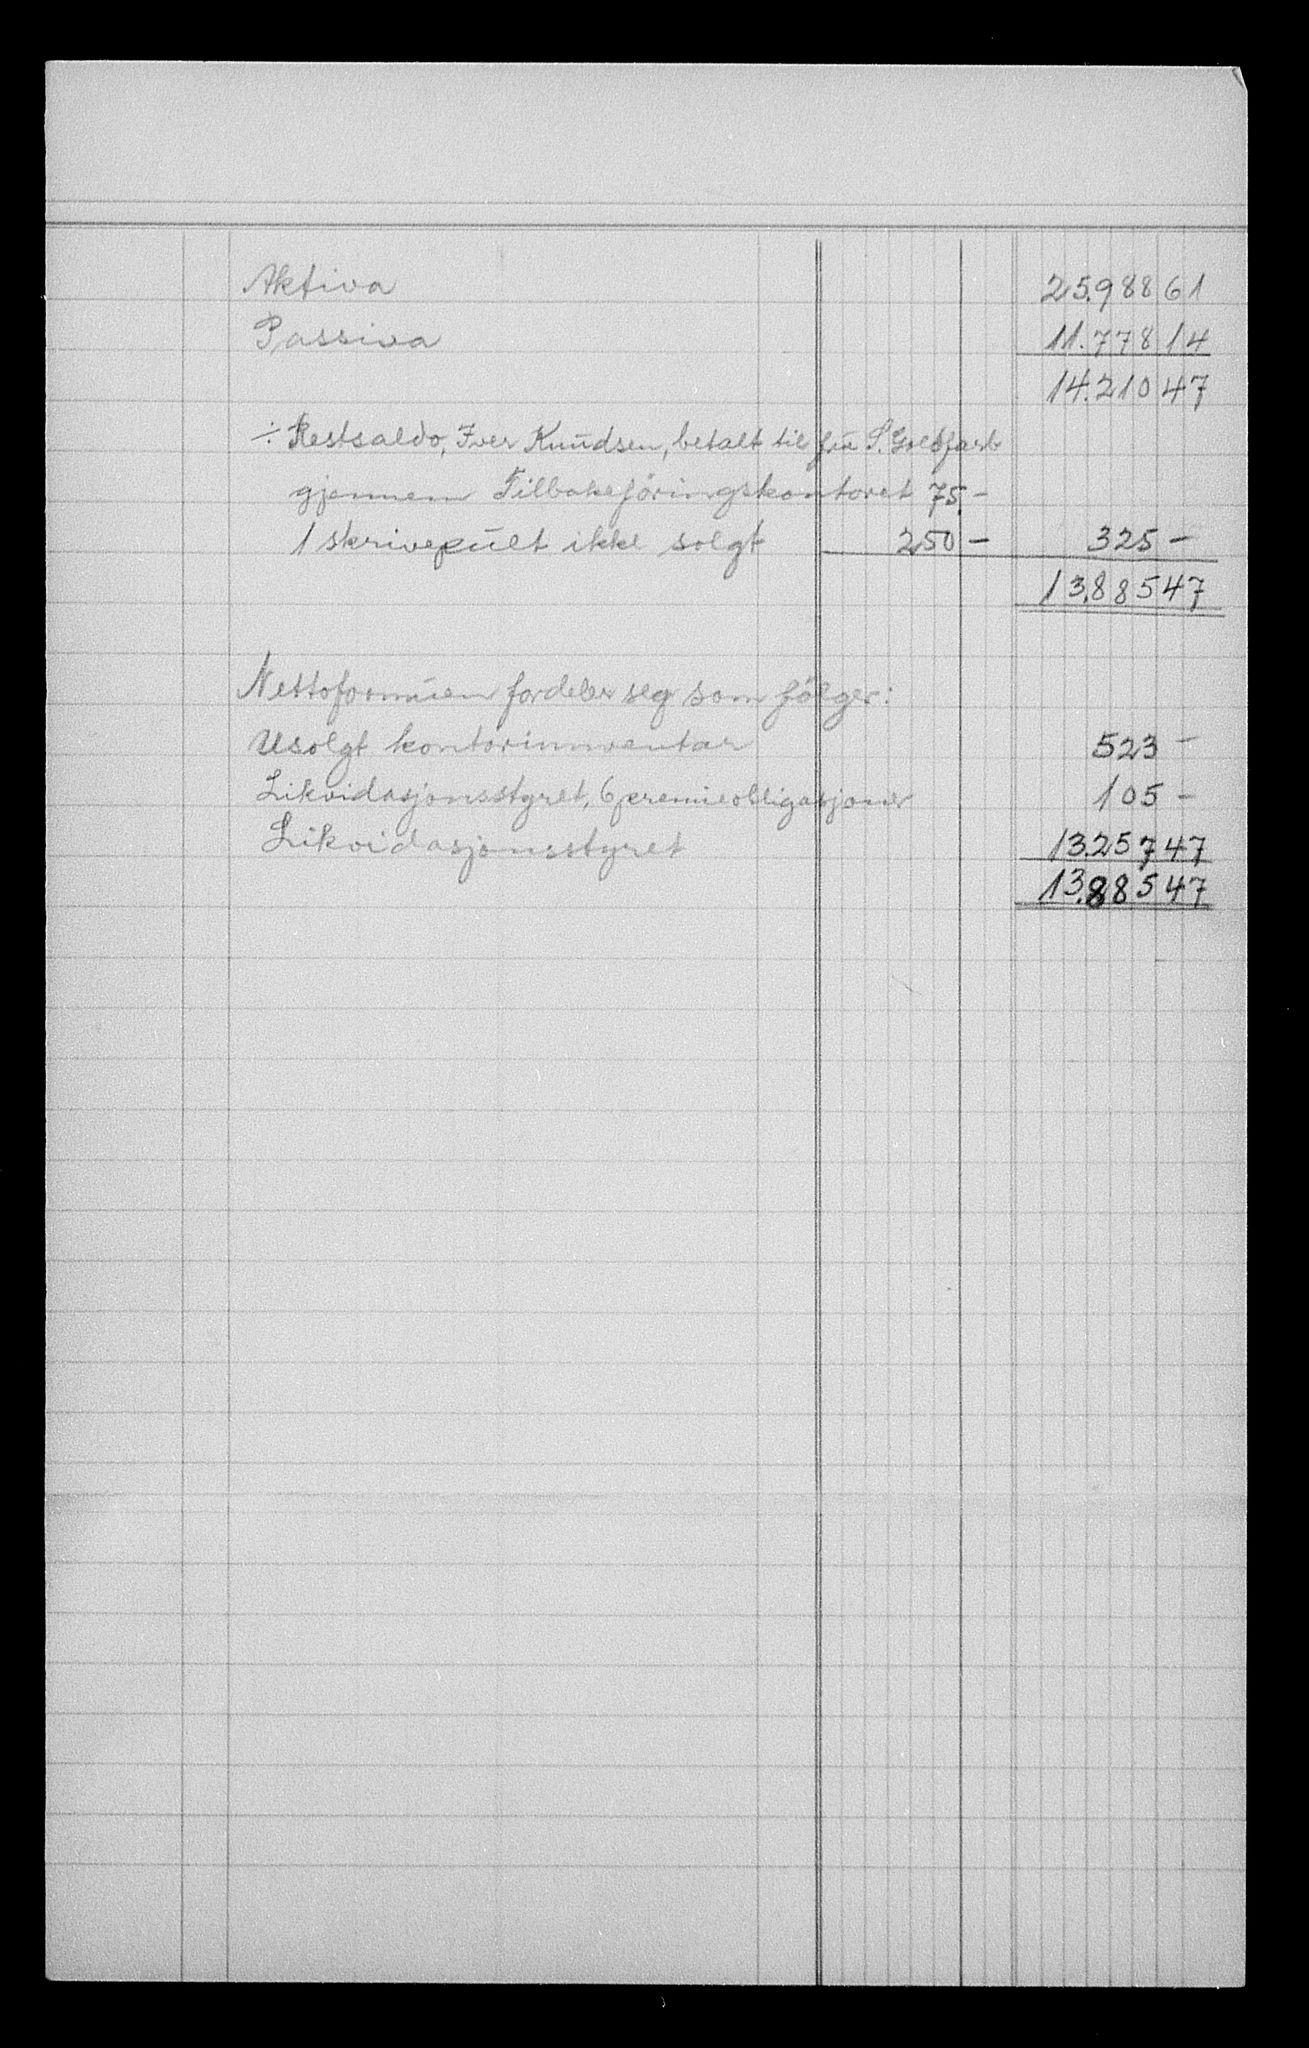 Aktiva 25.988 61
Passiva 11.778 14
14.210 47
÷ Restsaldo, Iver Knudsen, betalt til fru S. Goldfarb
gjennem Tilbakeføringskontoret 75.-
1 skrivepult ikke solgt 250 - 325 -
13.885 47
Nettoformuen fordeler seg som følger:
Usolgt kontorinventar 523 -
Likvidasjonsstyret, 6 premieobligasjoner 105 -
Likvidasjonsstyret 13.257 47
13.885 47